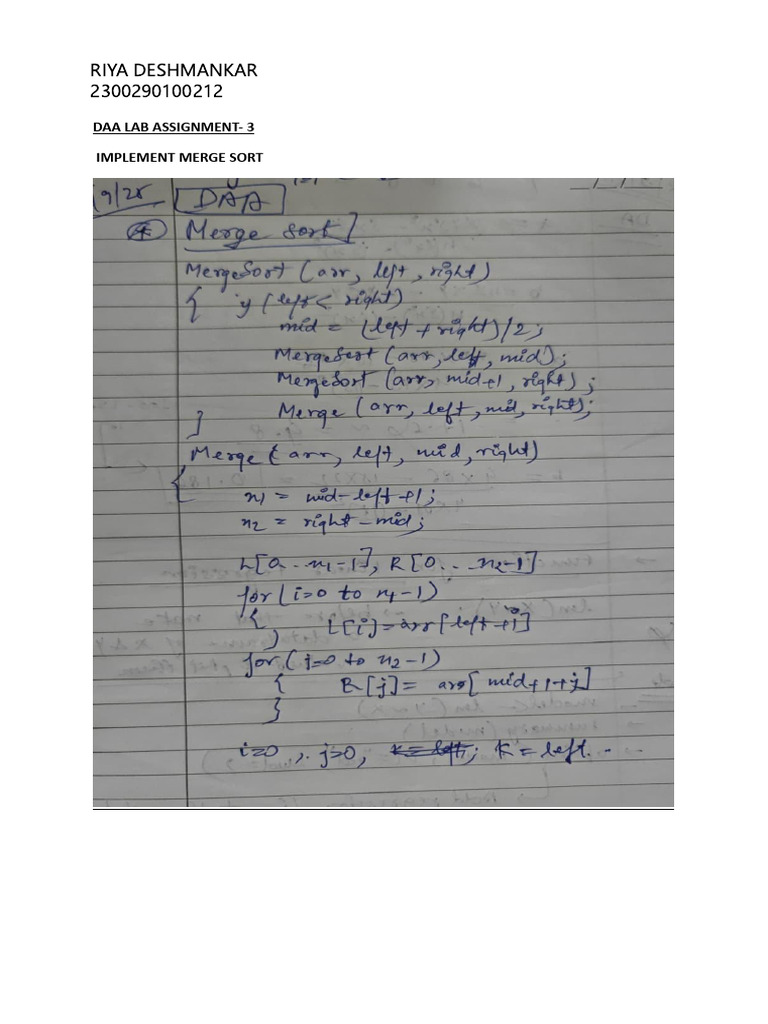 RIYA DESHMANKAR
2300290100212
DAA LAB ASSIGNMENT- 3
IMPLEMENT MERGE SORT
DAA
Merge Sort
MergeSort (arr, left, right)
{ if (left < right)
mid = (left + right)/2;
MergeSort (arr, left, mid);
MergeSort (arr, mid+1, right);
Merge (arr, left, mid, right);
}
Merge (arr, left, mid, right)
{
n1 = mid-left+1;
n2 = right-mid;
L[0...n1-1], R[0...n2-1]
for(i=0 to n1-1)
{ L[i]=arr[left+i]
}
for(j=0 to n2-1)
{ R[j]= arr[mid+1+j]
}
i=0, j=0, k=left; K=left...